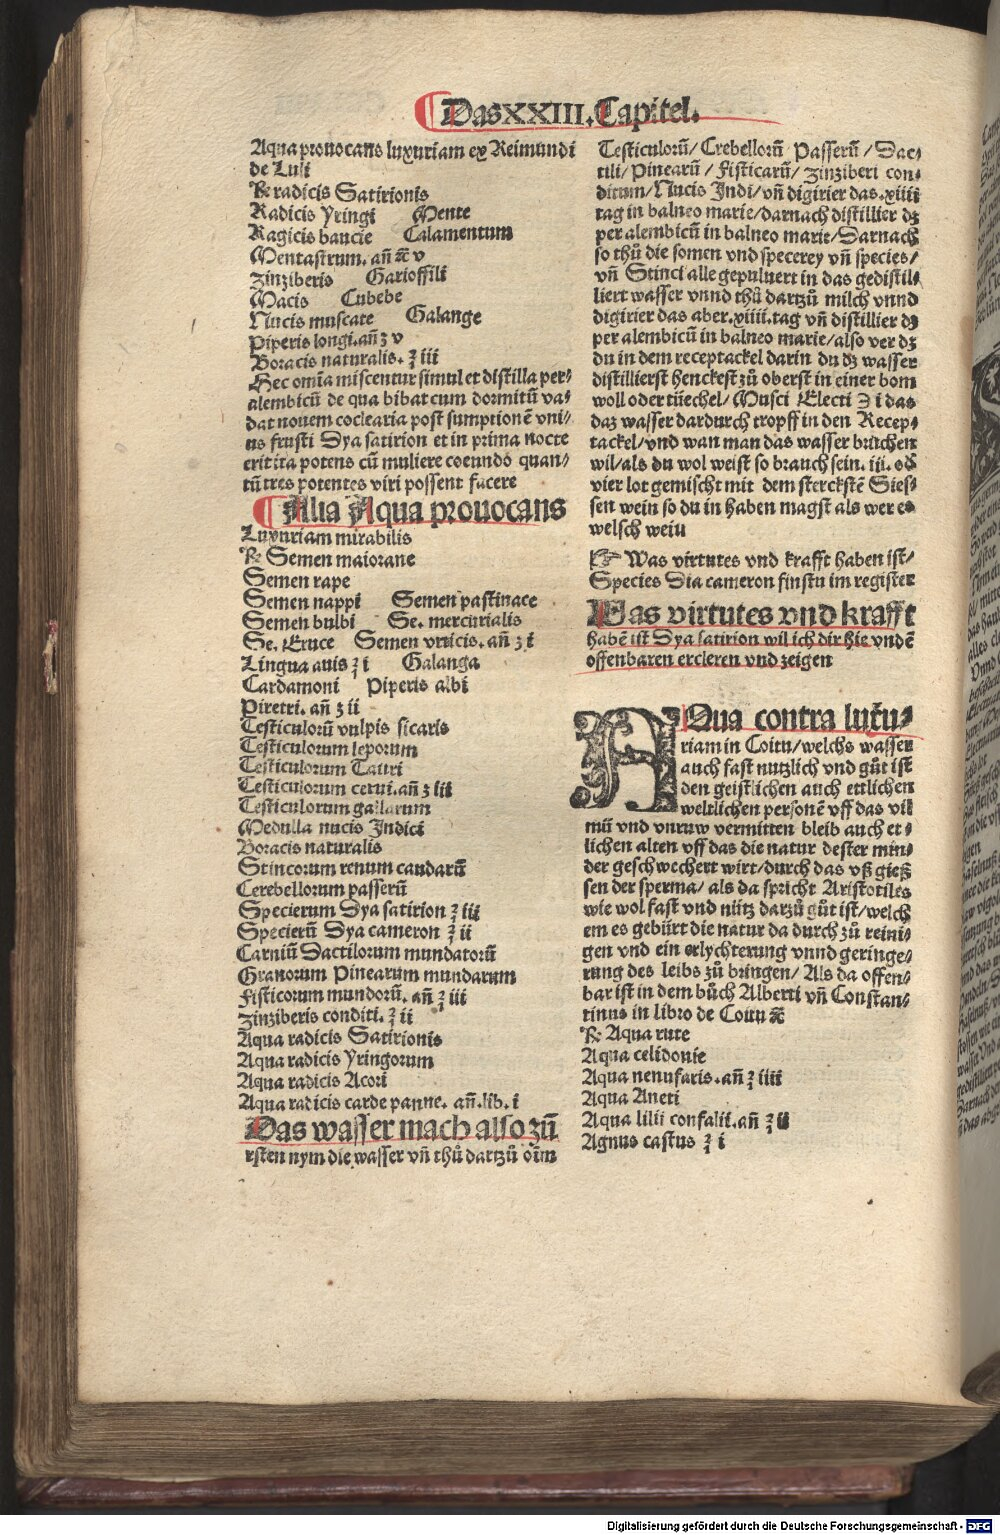 Das XXIII. Capitel.
Aqua prouocans luxuriam ex Reimundi
de Luli
℞ radicis Satirionis
Radicis Yringi Mente
Ragicis baucie Calamentum
Mentastrum. añ ꝛc v
zinziberis Garioffili
Macis Cubebe
Nucis muscate Galange
Piperis longi. añ ʒ v
Boracis naturalis. ℥ iii
Hec om̄ia miscentur simul et distilla per⸗
alembicū de qua bibat cum dormitū va⸗
dat nouem coclearia post sumptionē vni⸗
us frusti Dya satirion et in prima nocte
erit ita potens cū muliere coeundo quan⸗
tū tres potentes viri possent facere
Alia Aqua prouocans
Luxuriam mirabilis
℞ Semen maiorane
Semen rape
Semen nappi Semen pastinace
Semen bulbi Se. mercurialis
Se. Eruce Semen vrticis. añ ʒ i
Lingua auis ℥ i Galanga
Cardamoni Piperis albi
Piretri. añ ʒ ii
Testiculorū vulpis sicaris
Testiculorum leporum
Testiculorum Tauri
Testiculorum cerui. añ ʒ iii
Testiculorum gallarum
Medulla nucis Indici
Boracis naturalis
Stincorum renum caudarū
Cerebellorum passerū
Specierum Dya satirion ℥ iii
Specierū Dya cameron ℥ ii
Carniū Dactilorum mundatorū
Granorum Pinearum mundarum
Fisticorum mundorū. añ ℥ iii
zinziberis conditi. ℥ ii
Aqua radicis Satirionis
Aqua radicis Yringorum
Aqua radicis Acori
Aqua radicis carde panne. añ. lib. i
Das wasser mach also zů
ersten nym die wasser vñ thů dartzů oīm
Testiculorū/ Crebellorū Passerū/ Dac⸗
tili/ Pinearū/ Fisticarū/ zinziberi con⸗
ditum/ Nucis Indi/ vñ digirier das. xiiii
tag in balneo marie/ darnach distillier dz
per alembicū in balneo marie/ Darnach
so thů die somen vnd specerey vñ species/
vñ Stinci alle gepuluert in das gedistil⸗
liert wasser vnnd thů dartzů milch vnnd
digirier das aber. xiiii. tag vñ distillier dz
per alembicū in balneo marie/ also ver dz
du in dem receptackel darin du dz wasser
distillierst henckest zů oberst in einer bom
woll oder tüechel/ Musci Electi ℈ i das
daz wasser dardurch tropff in den Recep⸗
tackel/ vnd wan man das wasser bruchen
wil/ als du wol weist so brauch sein. iii. od̄
vier lot gemischt mit dem sterckstē Sies⸗
sen wein so du in haben magst als wer es
welsch wein
☞ Was virtutes vnd krafft haben ist/
Species Dia cameron finstu im register
Was virtutes vnd krafft
habē ist Dya satirion wil ich dir hie vndē
offenbaren ercleren vnd zeigen
AQua contra luxu⸗
riam in Coitu/ welchs wasser
auch fast nutzlich vnd gůt ist
den geistlichen auch ettlichen
weltlichen personē vff das vil
mū vnd vnruw vermitten bleib auch et⸗
lichen alten vff das die natur dester min⸗
der geschwechert wirt/ durch das vß gieß
sen der sperma/ als da spricht Aristotiles
wie wol fast vnd nütz darzů gůt ist/ welch
em es gebürt die natur da durch zů reini⸗
gen vnd ein erlychterung vnnd geringe⸗
rung des leibs zů bringen/ Als da offen⸗
bar ist in dem bůch Alberti vñ Constan⸗
tinus in libro de Coitu ꝛc
℞ Aqua rute
Aqua celidonie
Aqua nenufaris. añ ℥ iiii
Aqua Aneti
Aqua lilii consalii. añ ℥ ii
Agnus castus ℥ i
Digitalisierung gefördert durch die Deutsche Forschungsgemeinschaft - DFG